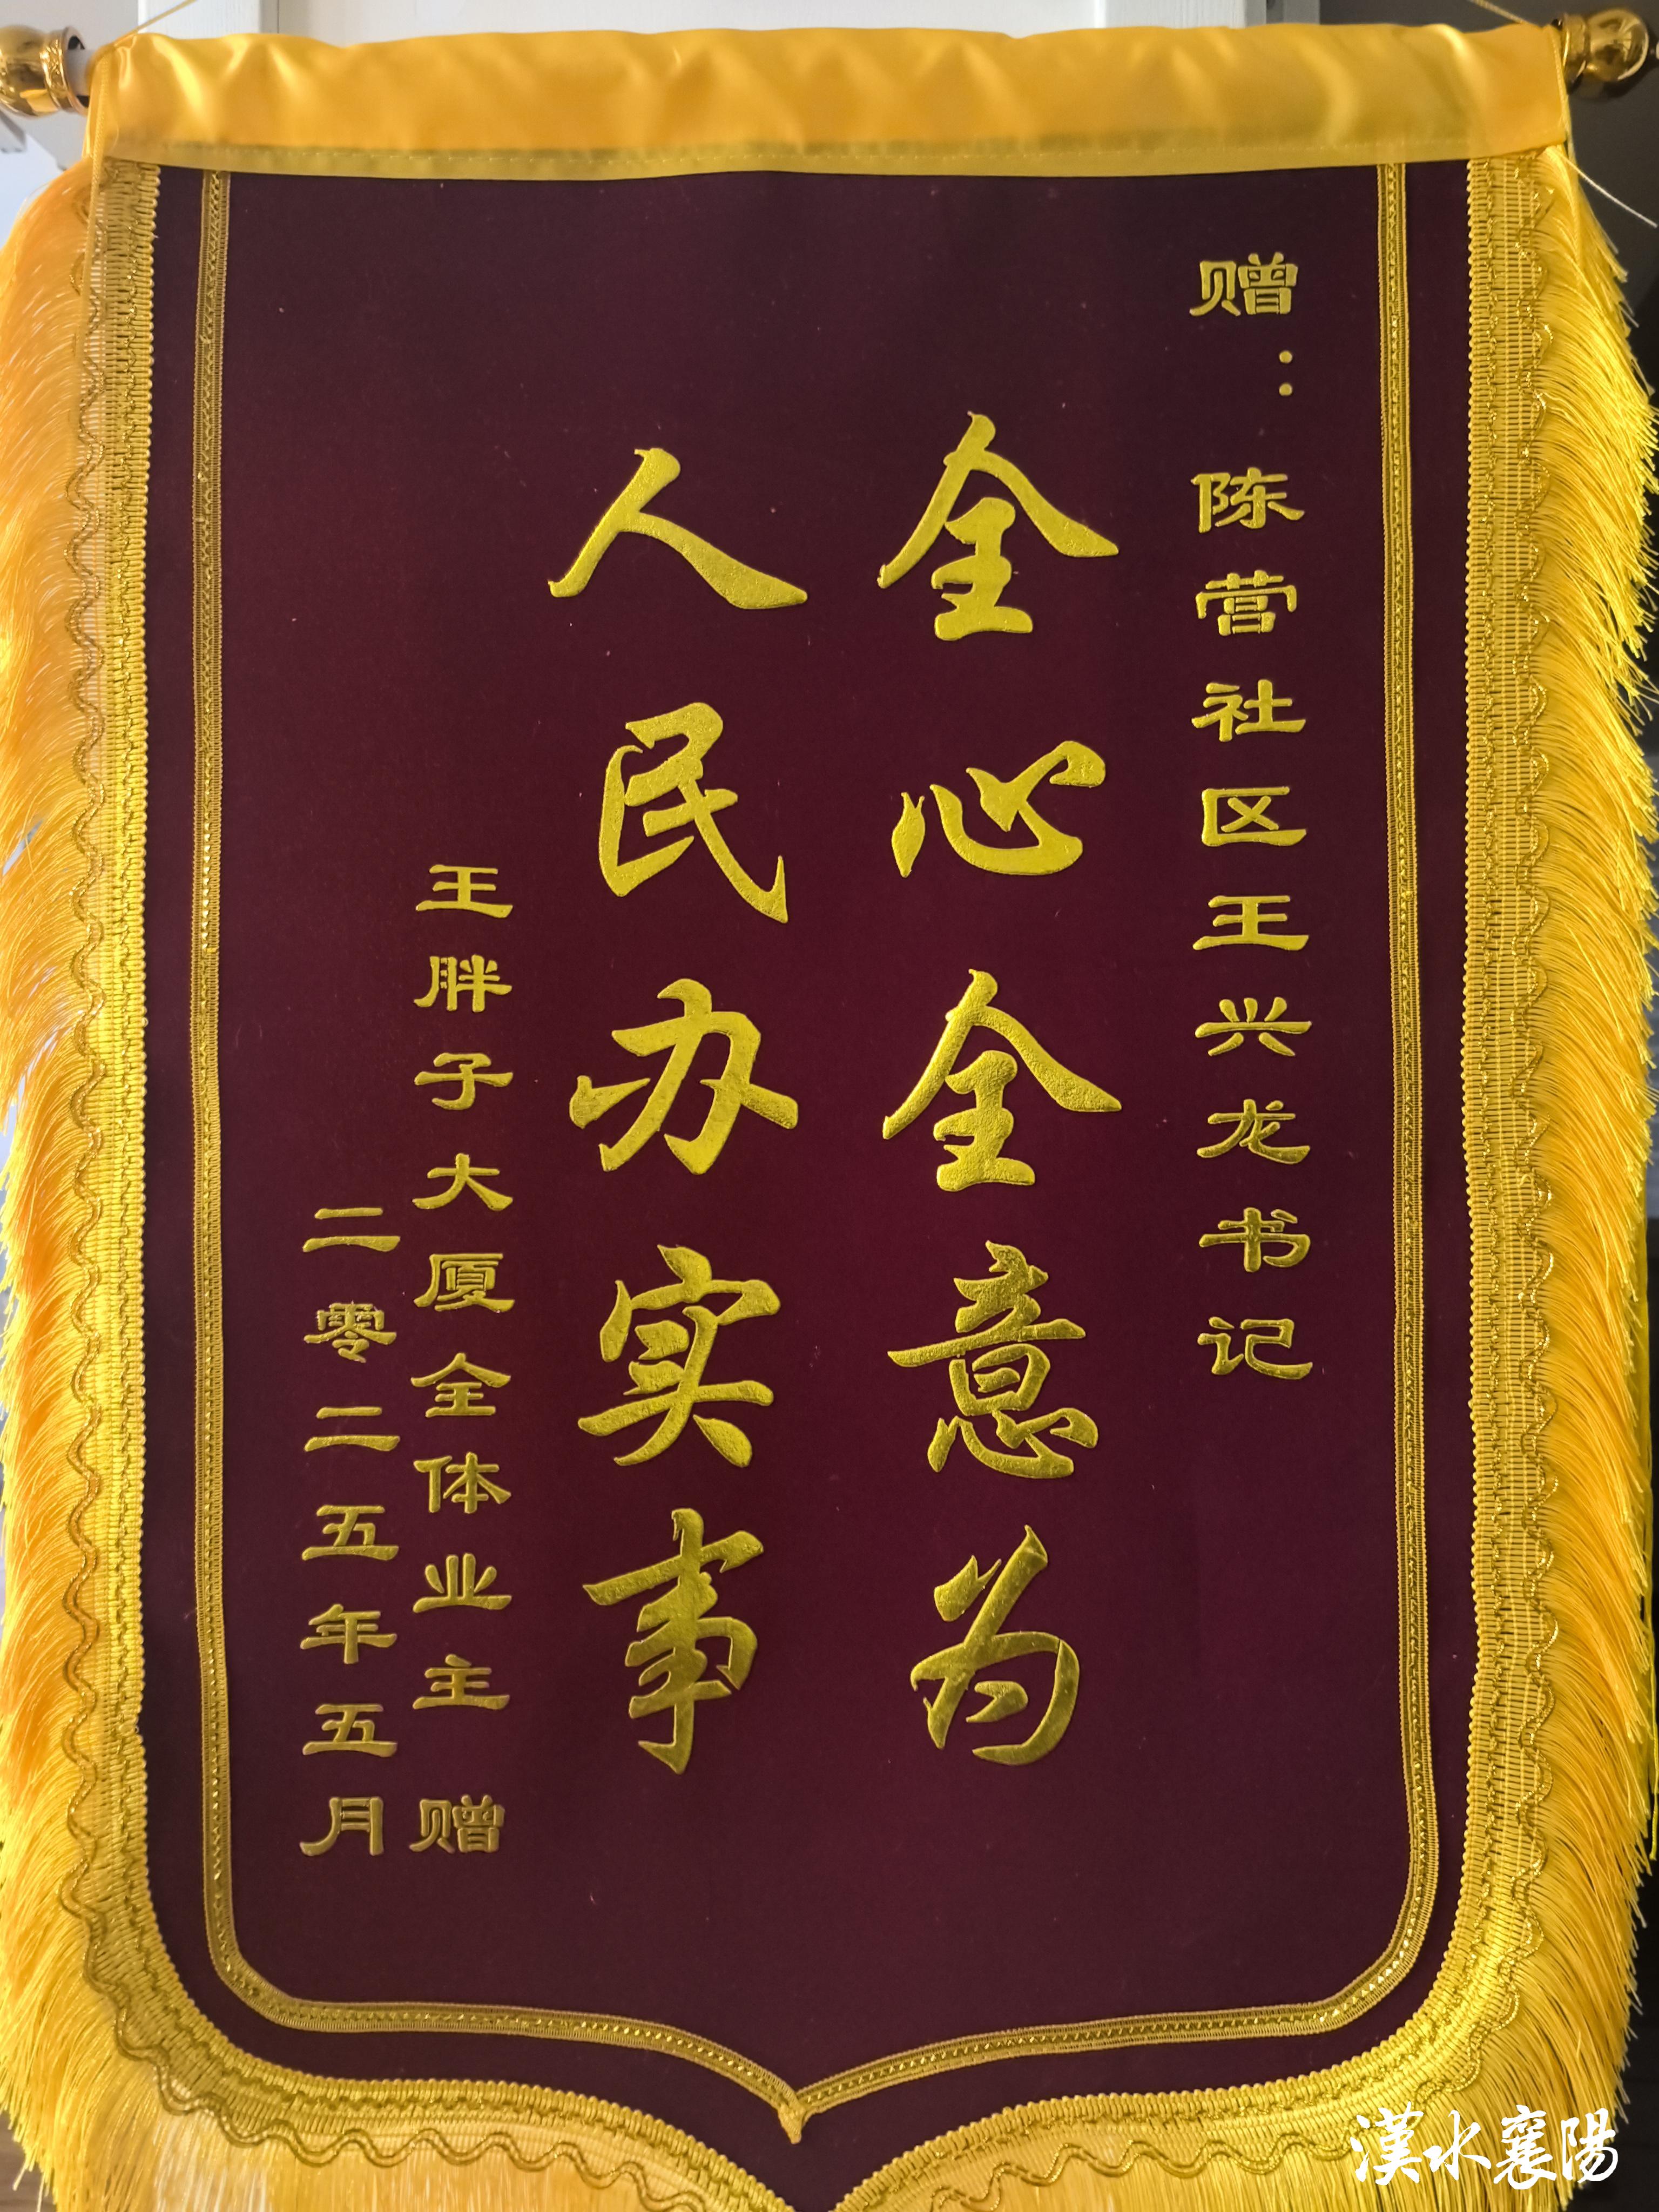 赠：陈营社区王兴龙书记
全心全意为
人民办实事
王胖子大厦全体业主 赠
二零二五年五月
漢水襄陽